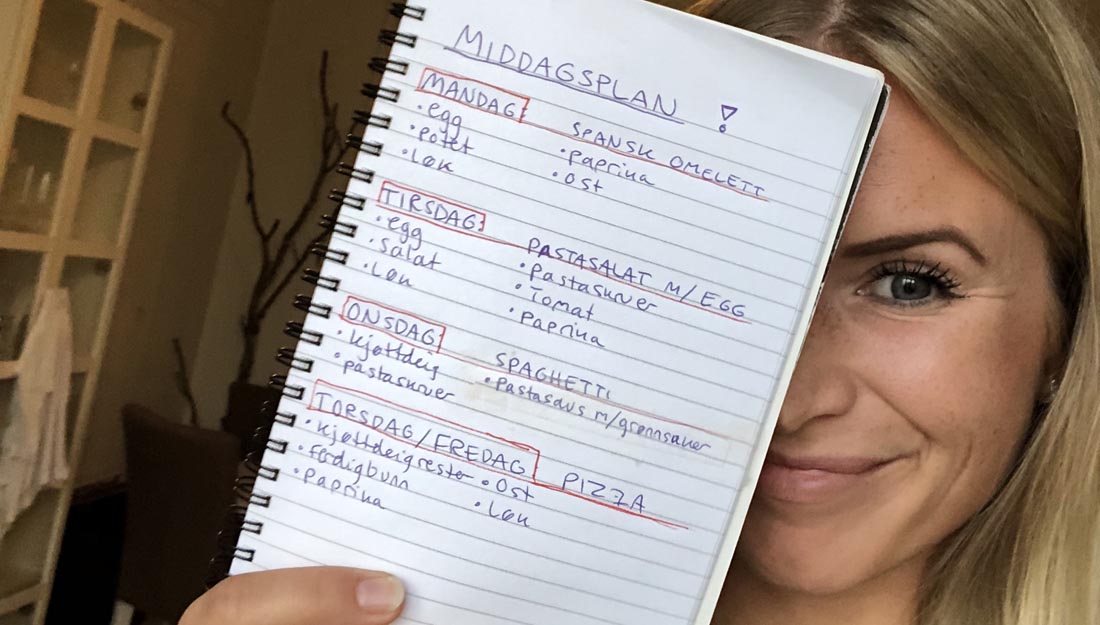 MIDDAGSPLAN !
MANDAG: SPANSK OMELETT
• egg • paprika
• potet • Ost
• Løk
TIRSDAG: PASTASALAT M/ EGG
• egg • Pastaskruer
• salat • Tomat
• Løk • paprika
ONSDAG: SPAGHETTI
• kjøttdeig • Pastasaus m/grønnsaker
• pastaskruer
TORSDAG/FREDAG PIZZA
• kjøttdeigrester • Ost
• Ferdigbunn • Løk
• Paprika